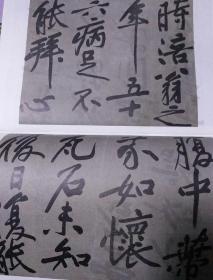 時涪翁之
年五十
六病足不
能拜心
腹中蔕
芥如懷
瓦石未知
後日復能